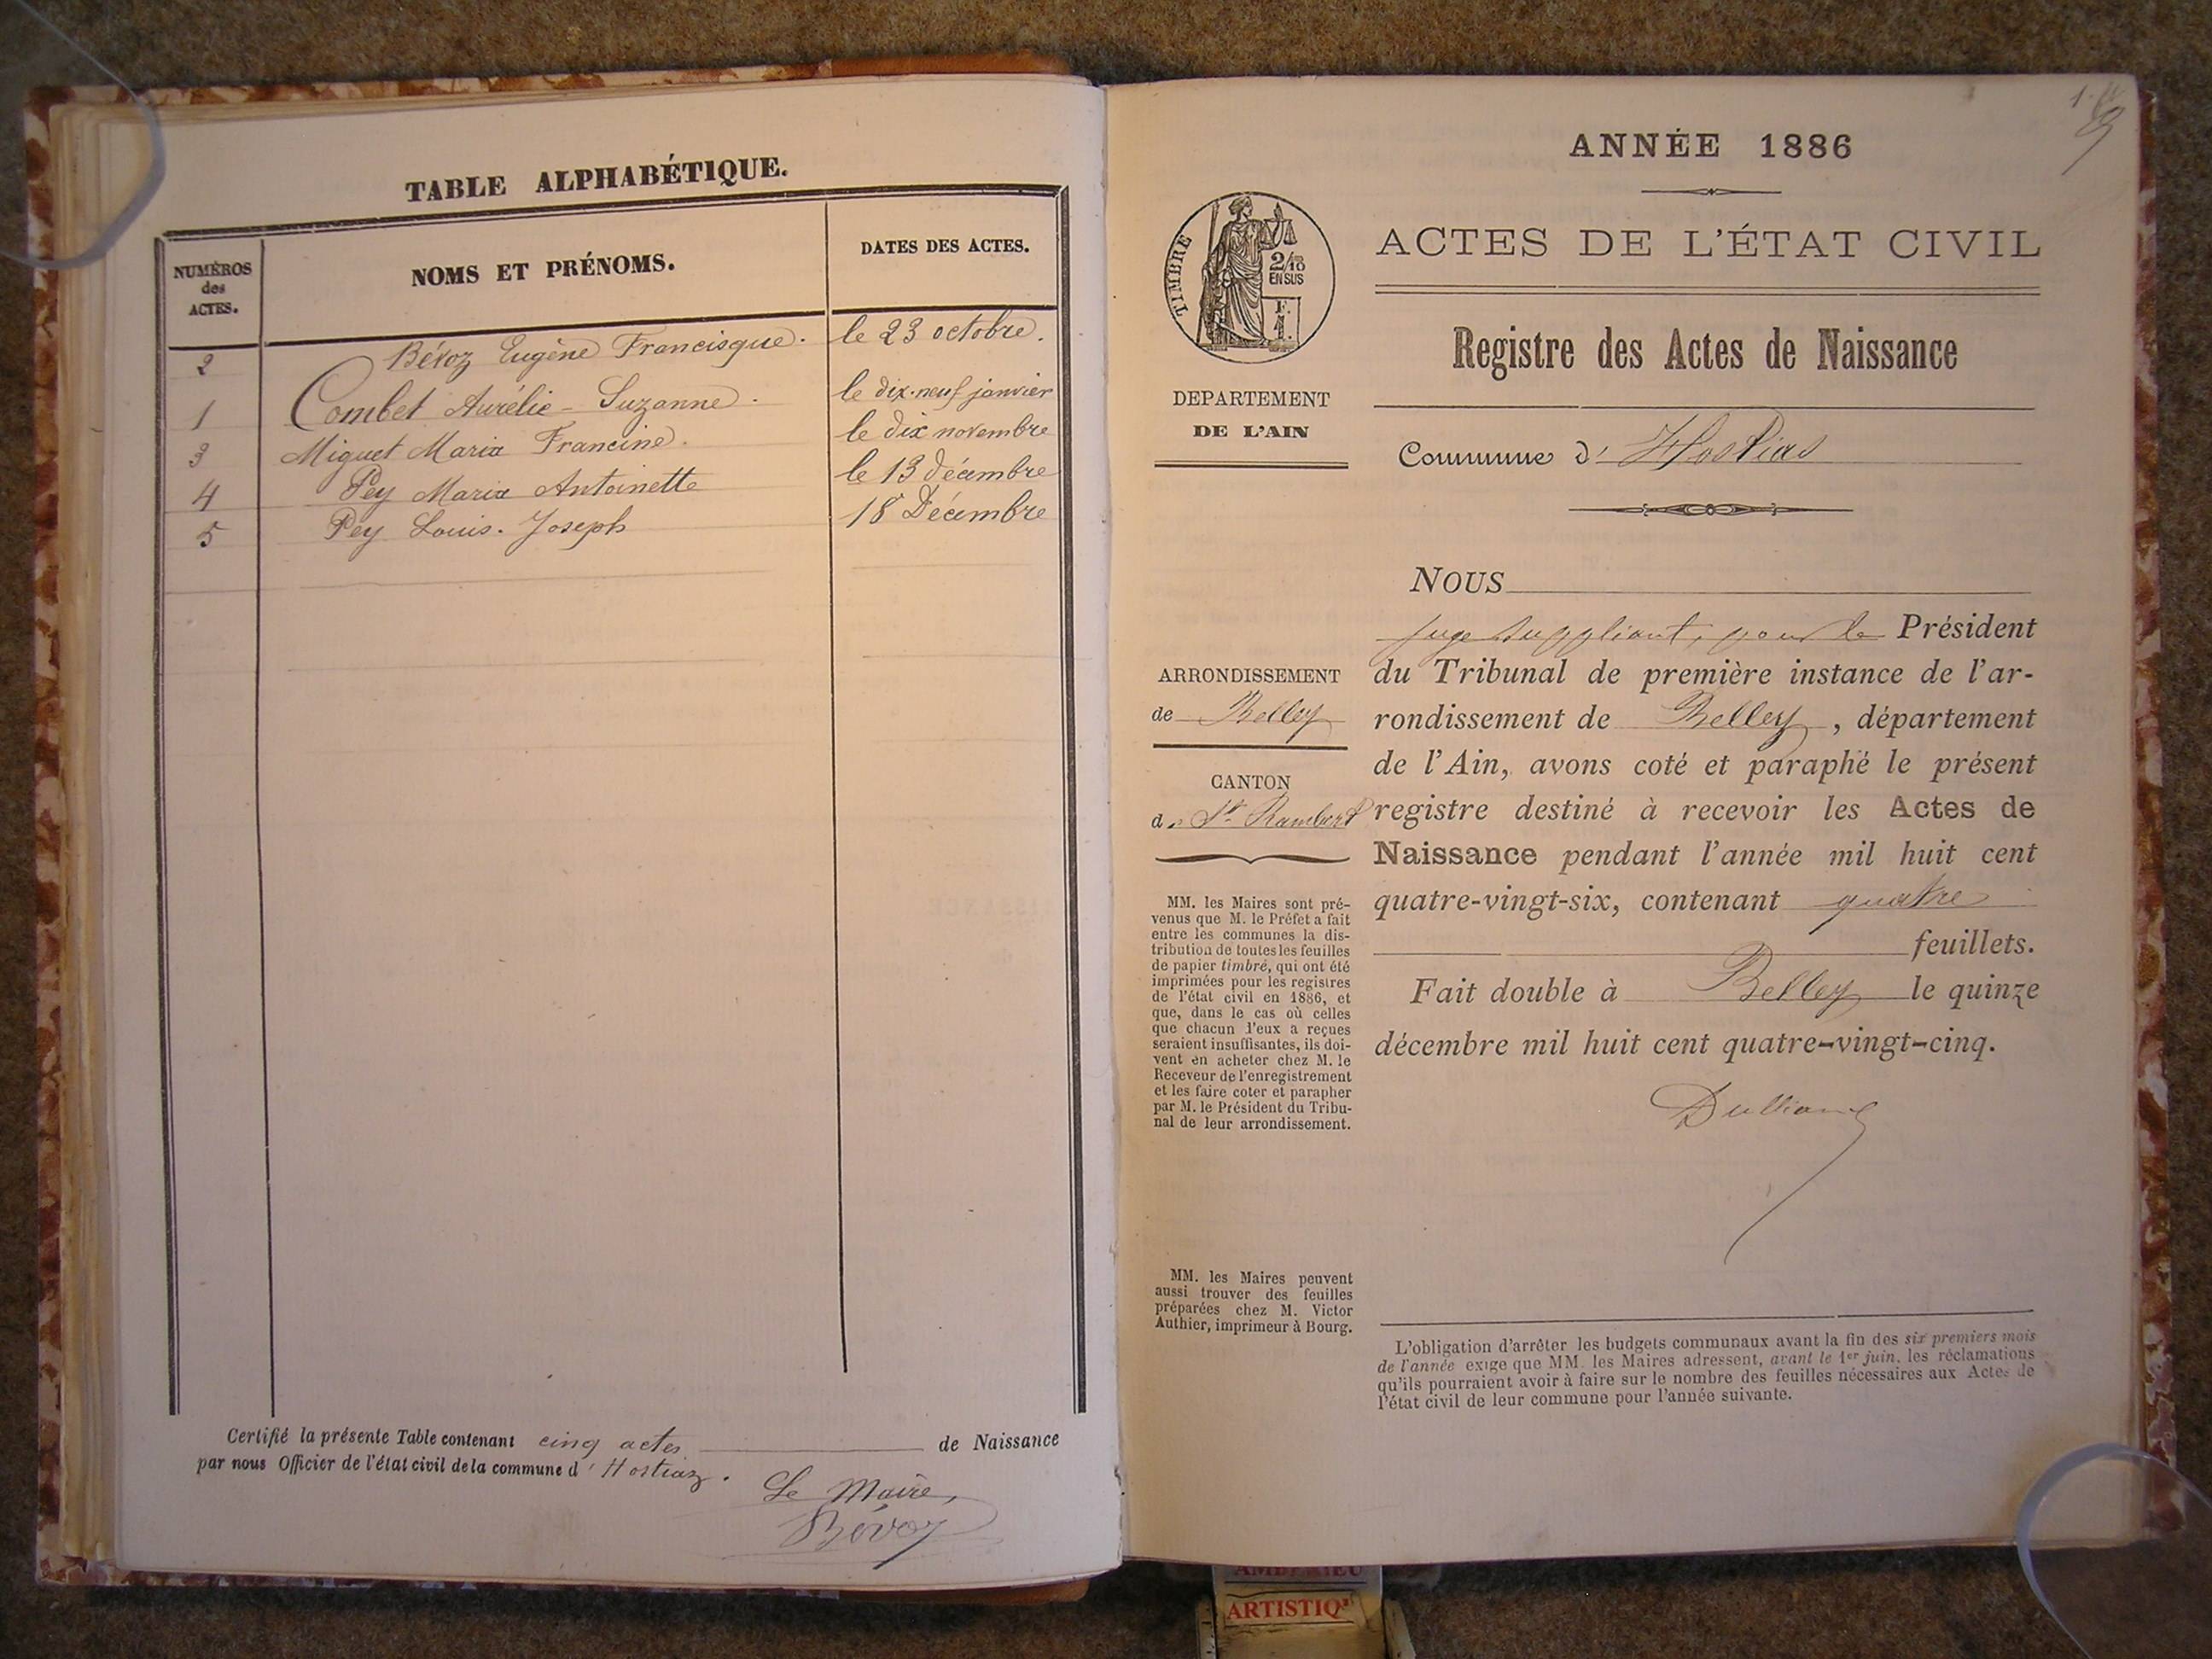 TABLE ALPHABÉTIQUE.
NUMÉROS
des
ACTES.
NOMS ET PRÉNOMS.
DATES DES ACTES.
2 Bévoz Eugène Francisque. le 23 octobre.
1 Combet Aurélie-Suzanne. le dix-neuf janvier
3 Miguet Maria Francine. le dix novembre
4 Pey Maria Antoinette le 13 décembre
5 Pey Louis-Joseph 18 Décembre
Certifié la présente Table contenant cinq actes de Naissance
par nous Officier de l'état civil de la commune d'Hostiaz.
Le Maire,
Bévoz
ANNÉE 1886
TIMBRE
2/10
EN SUS
F.
1.
ACTES DE L'ÉTAT CIVIL
Registre des Actes de Naissance
DEPARTEMENT
DE L'AIN
Commune d'Hostias
NOUS
juge suppliant, pour le Président
du Tribunal de première instance de l'ar-
rondissement de Belley, département
de l'Ain, avons coté et paraphé le présent
registre destiné à recevoir les Actes de
Naissance pendant l'année mil huit cent
quatre-vingt-six, contenant quatre
feuillets.
Fait double à Belley le quinze
décembre mil huit cent quatre-vingt-cinq.
ARRONDISSEMENT
de Belley
CANTON
de St Rambert
MM. les Maires sont pré-
venus que M. le Préfet a fait
entre les communes la dis-
tribution de toutes les feuilles
de papier timbré, qui ont été
imprimées pour les registres
de l'état civil en 1886, et
que, dans le cas où celles
que chacun d'eux a reçues
seraient insuffisantes, ils doi-
vent en acheter chez M. le
Receveur de l'enregistrement
et les faire coter et parapher
par M. le Président du Tribu-
nal de leur arrondissement.
MM. les Maires peuvent
aussi trouver des feuilles
préparées chez M. Victor
Authier, imprimeur à Bourg.
L'obligation d'arrêter les budgets communaux avant la fin des six premiers mois
de l'année exige que MM. les Maires adressent, avant le 1er juin, les réclamations
qu'ils pourraient avoir à faire sur le nombre des feuilles nécessaires aux Actes de
l'état civil de leur commune pour l'année suivante.
AMBERIEU
ARTISTIQ